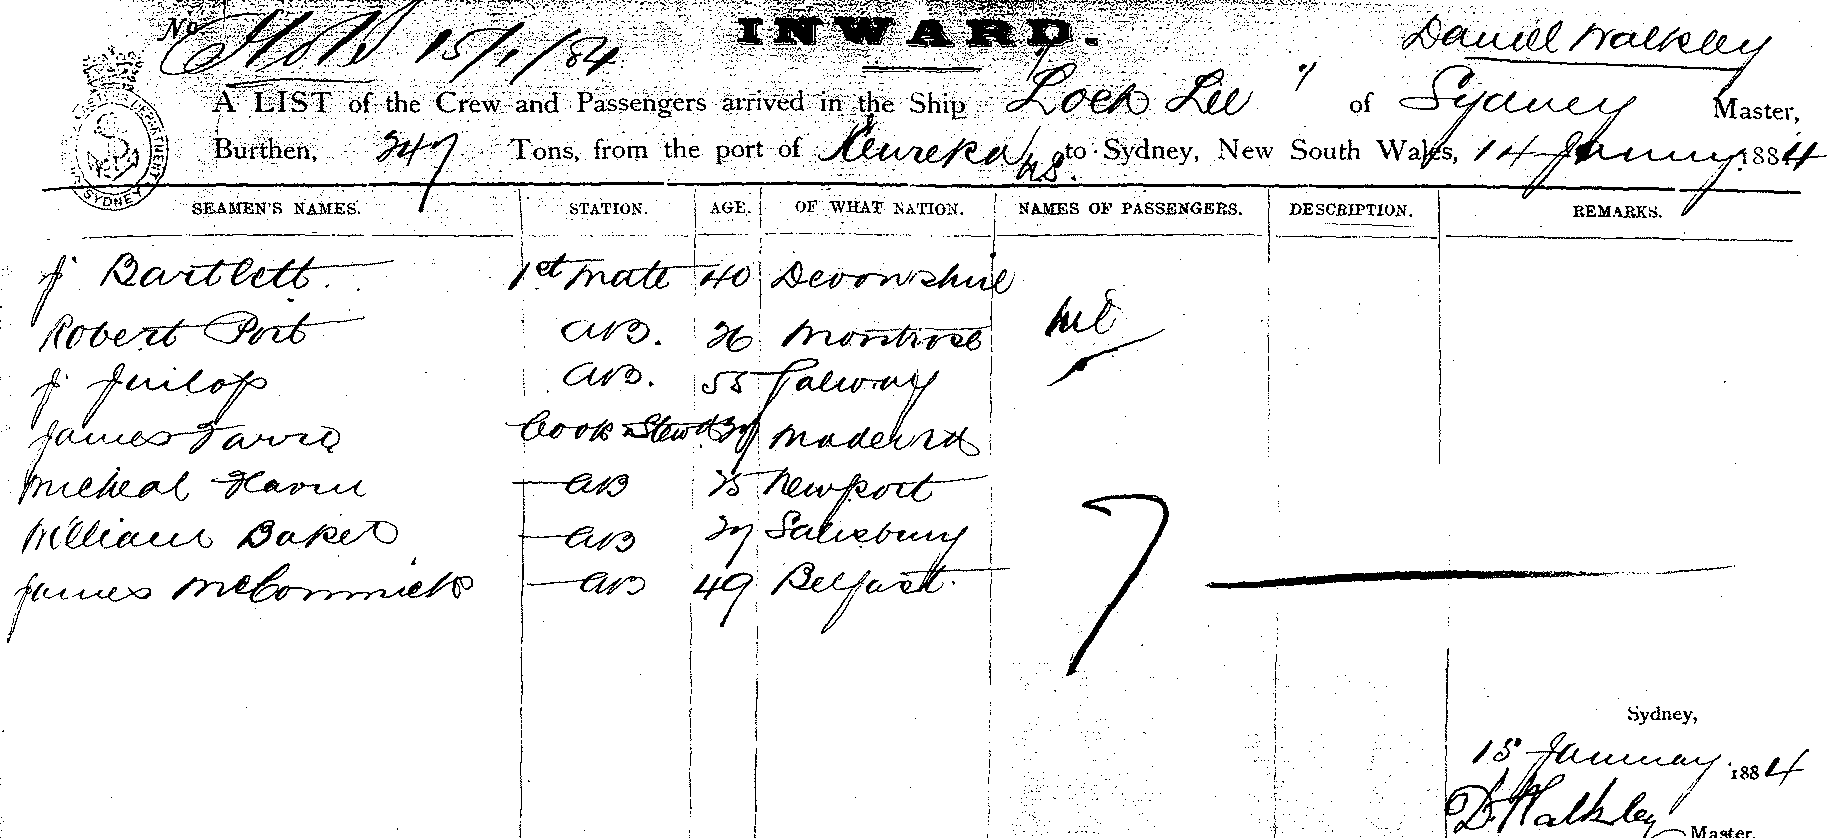 No 15/1/84 INWARD. Daniel Walkley
A LIST of the Crew and Passengers arrived in the Ship "Loch Lee" of Sydney Master,
Burthen, 247 Tons, from the port of to Sydney, New South Wales, 14 January 1884
SEAMEN'S NAMES. STATION. AGE. OF WHAT NATION. NAMES OF PASSENGERS. DESCRIPTION. REMARKS.
J Bartlett 1st Mate 40 Devonshire
Robert Port AB. 26 Montrose Nil
J AB. 55 Galway
James Cook & Stewd
Micheal AB 25 Newport
William Baker AB 27 Salisbury
James McCormick AB 49 Belfast
7
Sydney,
15 January 1884
D. Walkley Master.
CUSTOMS DEPARTMENT SYDNEY